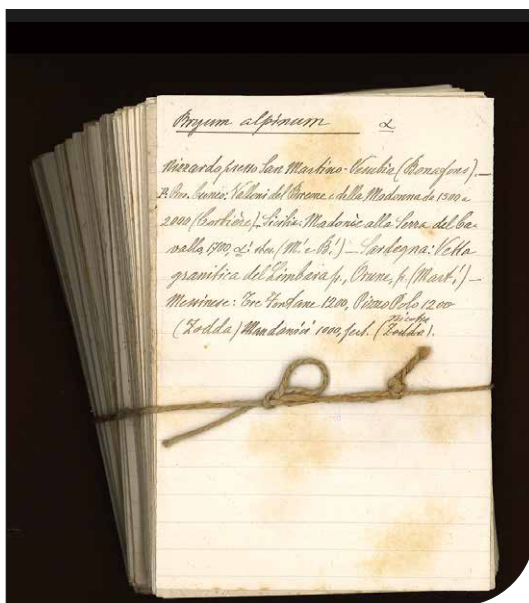 Bryum alpinum α
Nizzardo presso San Martino-Vesubia (Bonafons). —
P. Pno. Cuneo: Valloni del Breme e della Madonna da 1500 a
2000 (Corbière) – Sicilia: Madonie alla Serra del Ca-
valla, 1700, ♂ ster. (M. e B.!) — Sardegna: Vetta
granitica del Limbara fr., Orune, fr. (Mart.!) –
Messinese: Tre Fontane 1200, Pizzo Polo 1200
(Zodda) Mandanici 1000, fert. (Nicotra
Zodda).